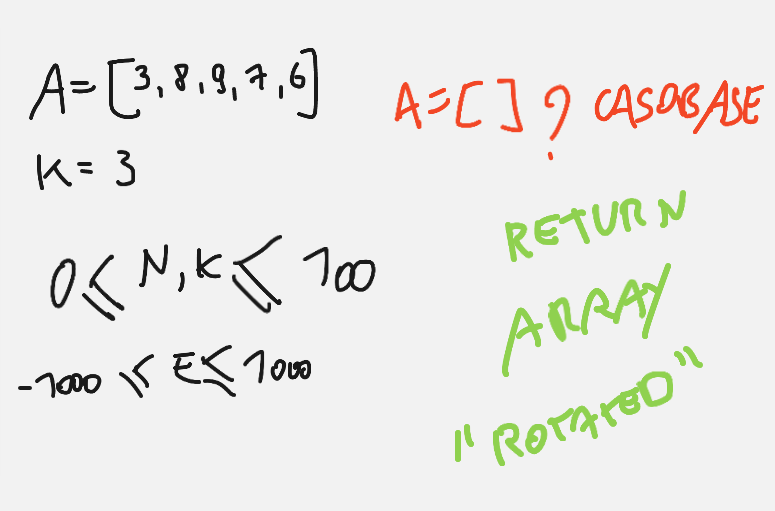 A=[3,8,9,7,6]
K=3
0≤N,K≤100
-1000≤E≤1000
A=[]? CASOBASE
RETURN
ARRAY
"ROTATED"